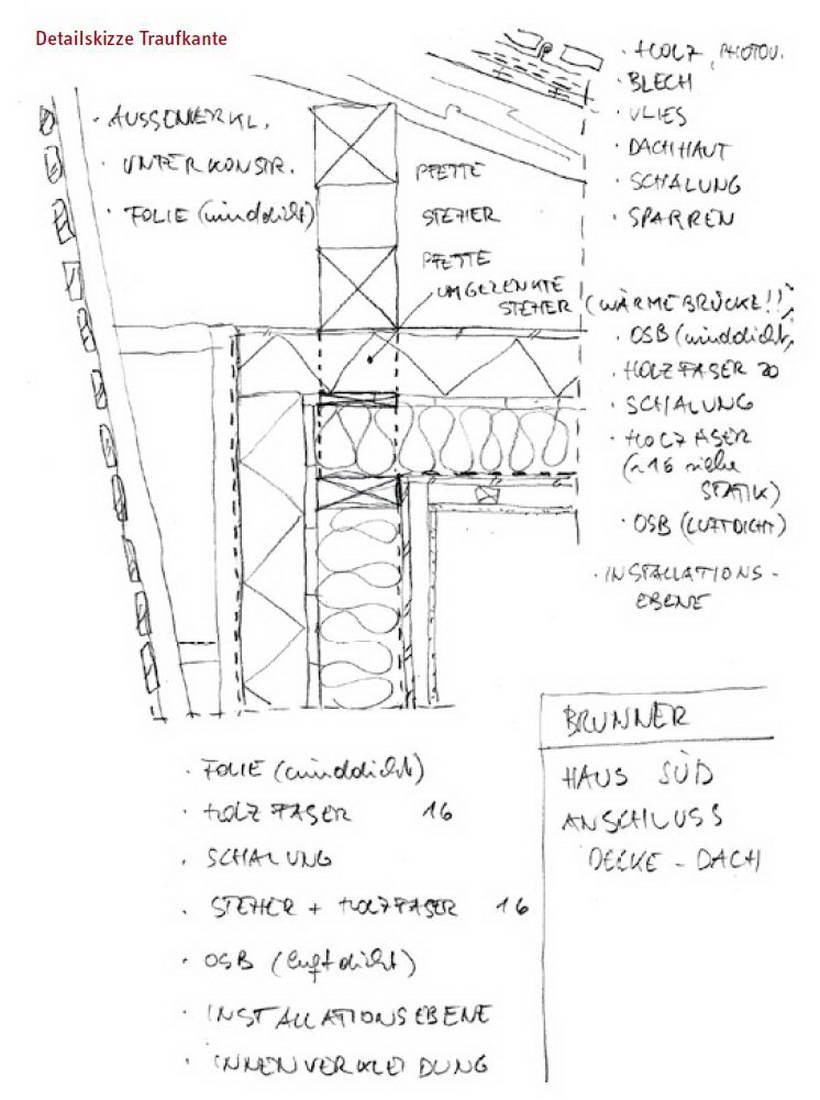 Detailskizze Traufkante
· HOLZ, PHOTOV.
· BLECH
· VLIES
· DACHHAUT
· SCHALUNG
· SPARREN
· AUSSENVERKL.
· UNTERKONSTR.
· FOLIE (winddicht)
PFETTE
STEHER
PFETTE
UMGELENKTE
STEHER (WÄRMEBRÜCKE!!)
· OSB (winddicht)
· HOLZFASER 20
· SCHALUNG
· HOLZFASER
(~16 siehe
STATIK)
· OSB (LUFTDICHT)
· INSTALLATIONS-
EBENE
· FOLIE (winddicht)
· HOLZFASER 16
· SCHALUNG
· STEHER + HOLZFASER 16
· OSB (luftdicht)
· INSTALLATIONSEBENE
· INNENVERKLEIDUNG
BRUNNER
HAUS SÜD
ANSCHLUSS
DECKE - DACH